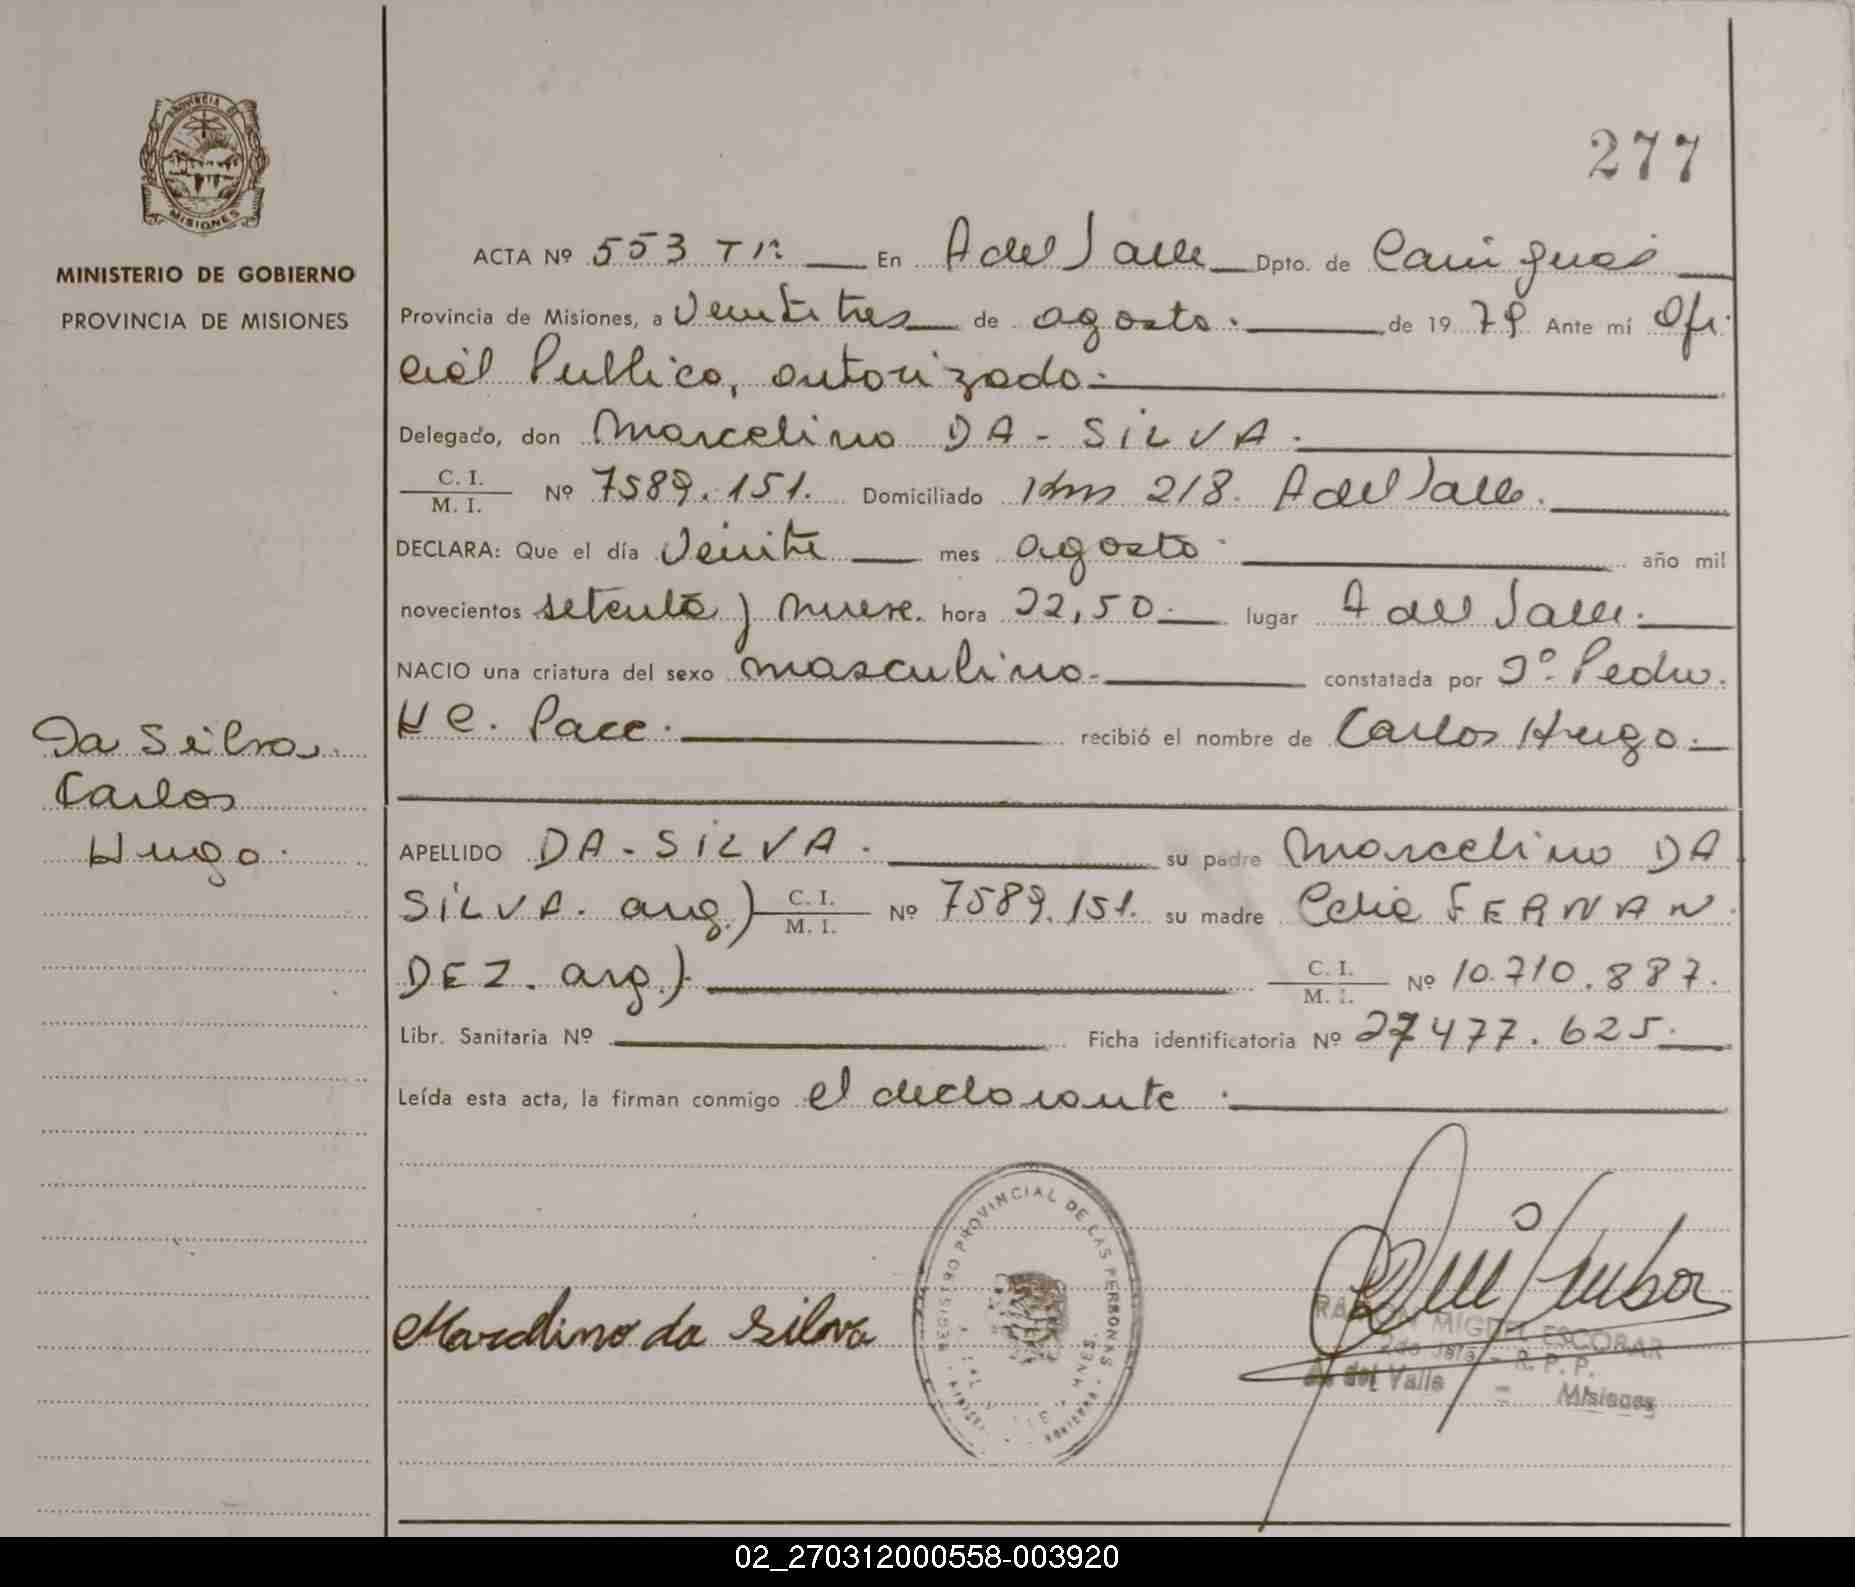 PROVINCIA DE
MISIONES
MINISTERIO DE GOBIERNO
PROVINCIA DE MISIONES
277
ACTA Nº 553 Tº En A del Valle Dpto. de Cainguás
Provincia de Misiones, a Veintitres de agosto. de 1979 Ante mí Ofi
cial Publico, autorizado.
Delegado, don Marcelino DA-SILVA.
C. I.
M. I. Nº 7589.151. Domiciliado Km 218. A del Valle.
DECLARA: Que el día Veinte mes agosto. año mil
novecientos setenta y nueve. hora 22,50. lugar A del Valle.
NACIO una criatura del sexo masculino. constatada por Dº. Pedro.
H C. Pace. recibió el nombre de Carlos Hugo.
Da Silva.
Carlos
Hugo.
APELLIDO DA-SILVA. su padre Marcelino DA
SILVA. arg.) C. I.
M. I. Nº 7589.151. su madre Celia FERNAN
DEZ. arg.) C. I.
M. I. Nº 10.710.887.
Libr. Sanitaria Nº Ficha identificatoria Nº 27477.625.
Leída esta acta, la firman conmigo el declarante.
REGISTRO PROVINCIAL DE LAS PERSONAS
MNES.
Marcelino da Silva
RAMON MIGUEL ESCOBAR
2do Jefe - R. P. P.
A. del Valle - Misiones
02_270312000558-003920